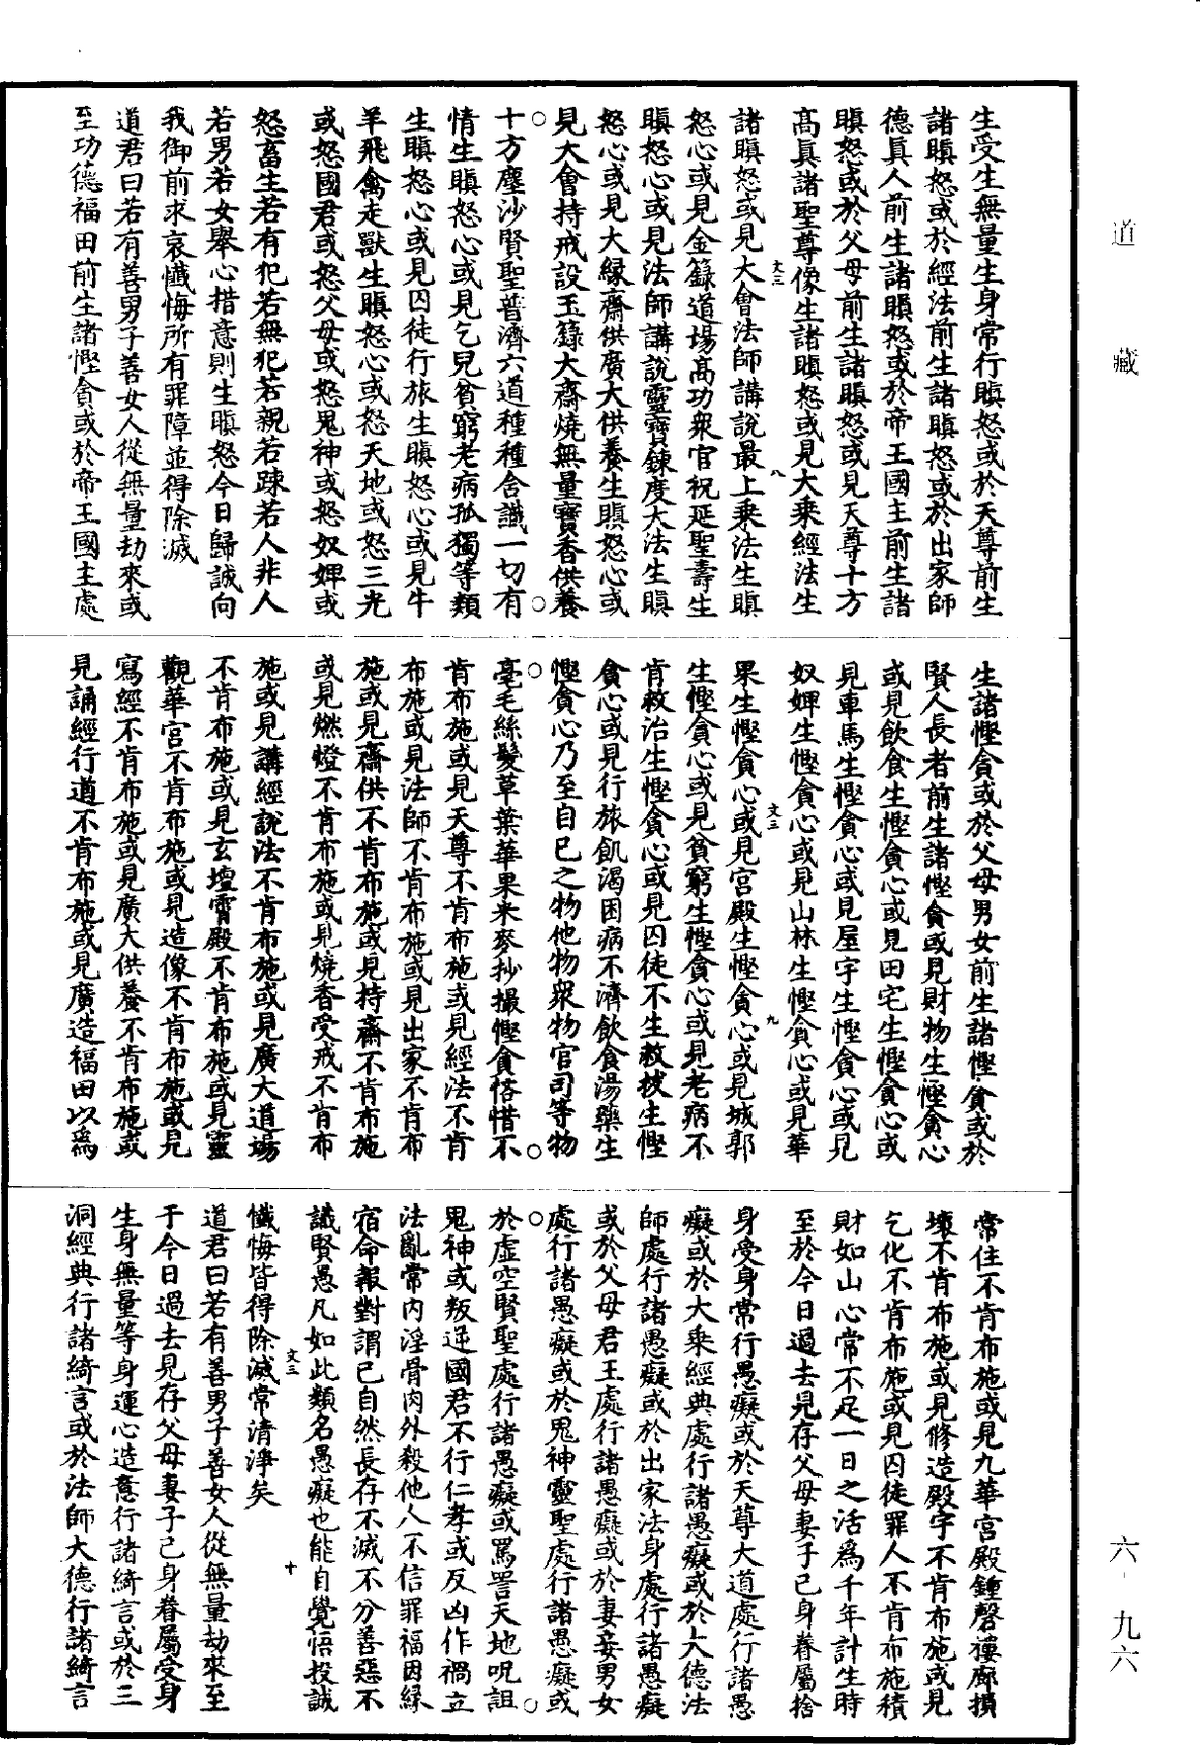 道藏
六·九六
生受生無量生身常行瞋怒或於天尊前生
諸瞋怒或於經法前生諸瞋怒或於出家師
德真人前生諸瞋怒或於帝王國主前生諸
瞋怒或於父母前生諸瞋怒或見天尊十方
高真諸聖尊像生諸瞋怒或見大乘經法生
文三 八
諸瞋怒或見大會法師講說最上乘法生瞋
怒心或見金籙道場高功衆官祝延聖壽生
瞋怒心或見法師講說靈寶鍊度大法生瞋
怒心或見大緣齋供廣大供養生瞋怒心或
見大會持戒設玉籙大齋燒無量寶香供養
十方塵沙賢聖普濟六道種種含識一切有
情生瞋怒心或見乞兒貧窮老病孤獨等類
生瞋怒心或見囚徒行旅生瞋怒心或見牛
羊飛禽走獸生瞋怒心或怒天地或怒三光
或怒國君或怒父母或怒鬼神或怒奴婢或
怒畜生若有犯若無犯若親若踈若人非人
若男若女舉心措意則生瞋怒今日歸誠向
我御前求哀懺悔所有罪障並得除滅
道君曰若有善男子善女人從無量劫來或
至功德福田前生諸慳貪或於帝王國主處
生諸慳貪或於父母男女前生諸慳貪或於
賢人長者前生諸慳貪或見財物生慳貪心
或見飲食生慳貪心或見田宅生慳貪心或
見車馬生慳貪心或見屋宇生慳貪心或見
奴婢生慳貪心或見山林生慳貪心或見華
文三 九
果生慳貪心或見宮殿生慳貪心或見城郭
生慳貪心或見貧窮生慳貪心或見老病不
肯救治生慳貪心或見囚徒不生救拔生慳
貪心或見行旅飢渴困病不濟飲食湯藥生
慳貪心乃至自己之物他物衆物官司等物
毫毛絲髮草葉華果米麥抄撮慳貪悋惜不
肯布施或見天尊不肯布施或見經法不肯
布施或見法師不肯布施或見出家不肯布
施或見齋供不肯布施或見持齋不肯布施
或見燃燈不肯布施或見燒香受戒不肯布
施或見講經說法不肯布施或見廣大道場
不肯布施或見玄壇霄殿不肯布施或見靈
觀華宮不肯布施或見造像不肯布施或見
寫經不肯布施或見廣大供養不肯布施或
見誦經行道不肯布施或見廣造福田以爲
常住不肯布施或見九華宮殿鍾磬樓廊損
壞不肯布施或見修造殿宇不肯布施或見
乞化不肯布施或見囚徒罪人不肯布施積
財如山心常不足一日之活爲千年計生時
至於今日過去見存父母妻子己身眷屬捨
身受身常行愚癡或於天尊大道處行諸愚
癡或於大乘經典處行諸愚癡或於大德法
師處行諸愚癡或於出家法身處行諸愚癡
或於父母君王處行諸愚癡或於妻妾男女
處行諸愚癡或於鬼神靈聖處行諸愚癡或
於虛空賢聖處行諸愚癡或罵詈天地呪詛
鬼神或叛逆國君不行仁孝或反凶作禍立
法亂常內淫骨肉外殺他人不信罪福因緣
宿命報對謂己自然長存不滅不分善惡不
識賢愚凡如此類名愚癡也能自覺悟投誠
文三 十
懺悔皆得除滅常清淨矣
道君曰若有善男子善女人從無量劫來至
于今日過去見存父母妻子己身眷屬受身
生身無量等身運心造意行諸綺言或於三
洞經典行諸綺言或於法師大德行諸綺言